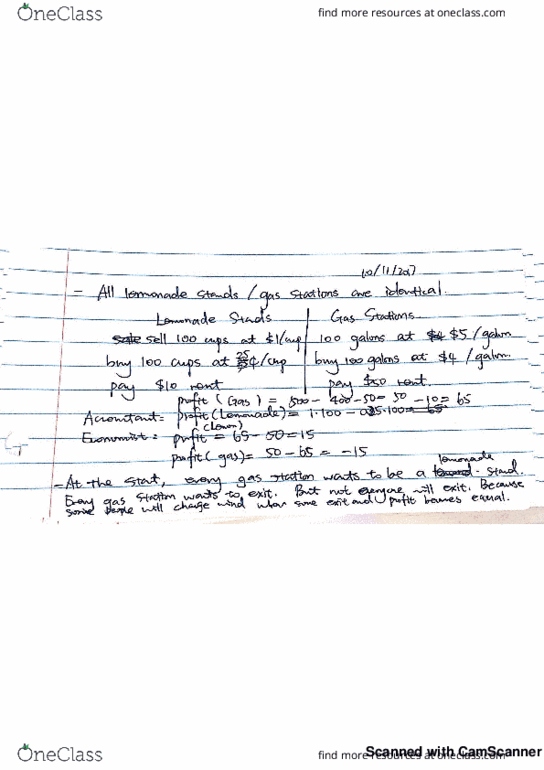 OneClass
find more resources at oneclass.com
10/11/2017
- All lemonade stands / gas stations are identical.
Lemonade Stands Gas Stations
sell 100 cups at $1/cup 100 galons at $5 / galorn
buy 100 cups at 25¢/cup buy 100 galons at $4 / galorn.
pay $10 rent pay $50 rent.
profit (Gas) = 500 - 400 - 50 = 50 - 10 = 65
Accountant = profit (Lemonade) = 1·100 - 0.25·100 = 65
Economist: profit = 65 - 50 = 15
profit (gas) = 50 - 65 = -15
- At the start, every gas station wants to be a lemonade stand.
Every gas station wants to exit. But not everyone will exit. Because
some people will change mind when some exit and profit becomes equal.
OneClass
find more resources at oneclass.com
Scanned with CamScanner